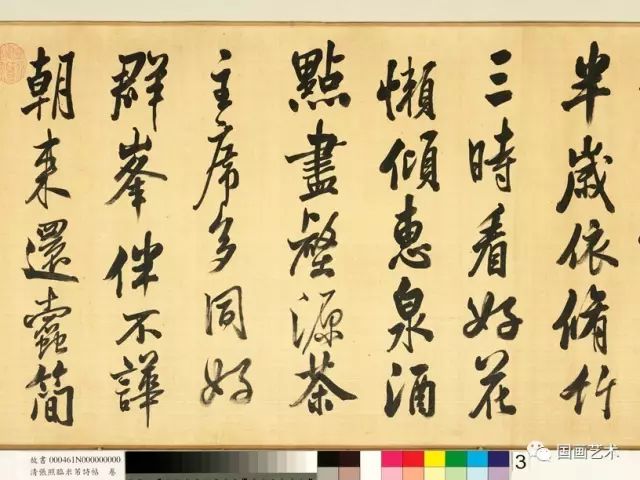 半歲依脩竹
三時看好花
懶傾惠泉酒
點盡壑源茶
主席多同好
群峯伴不譁
朝來還蠹簡
故書 000461N000000000
清張照臨米芾詩帖 卷
3
国画艺术